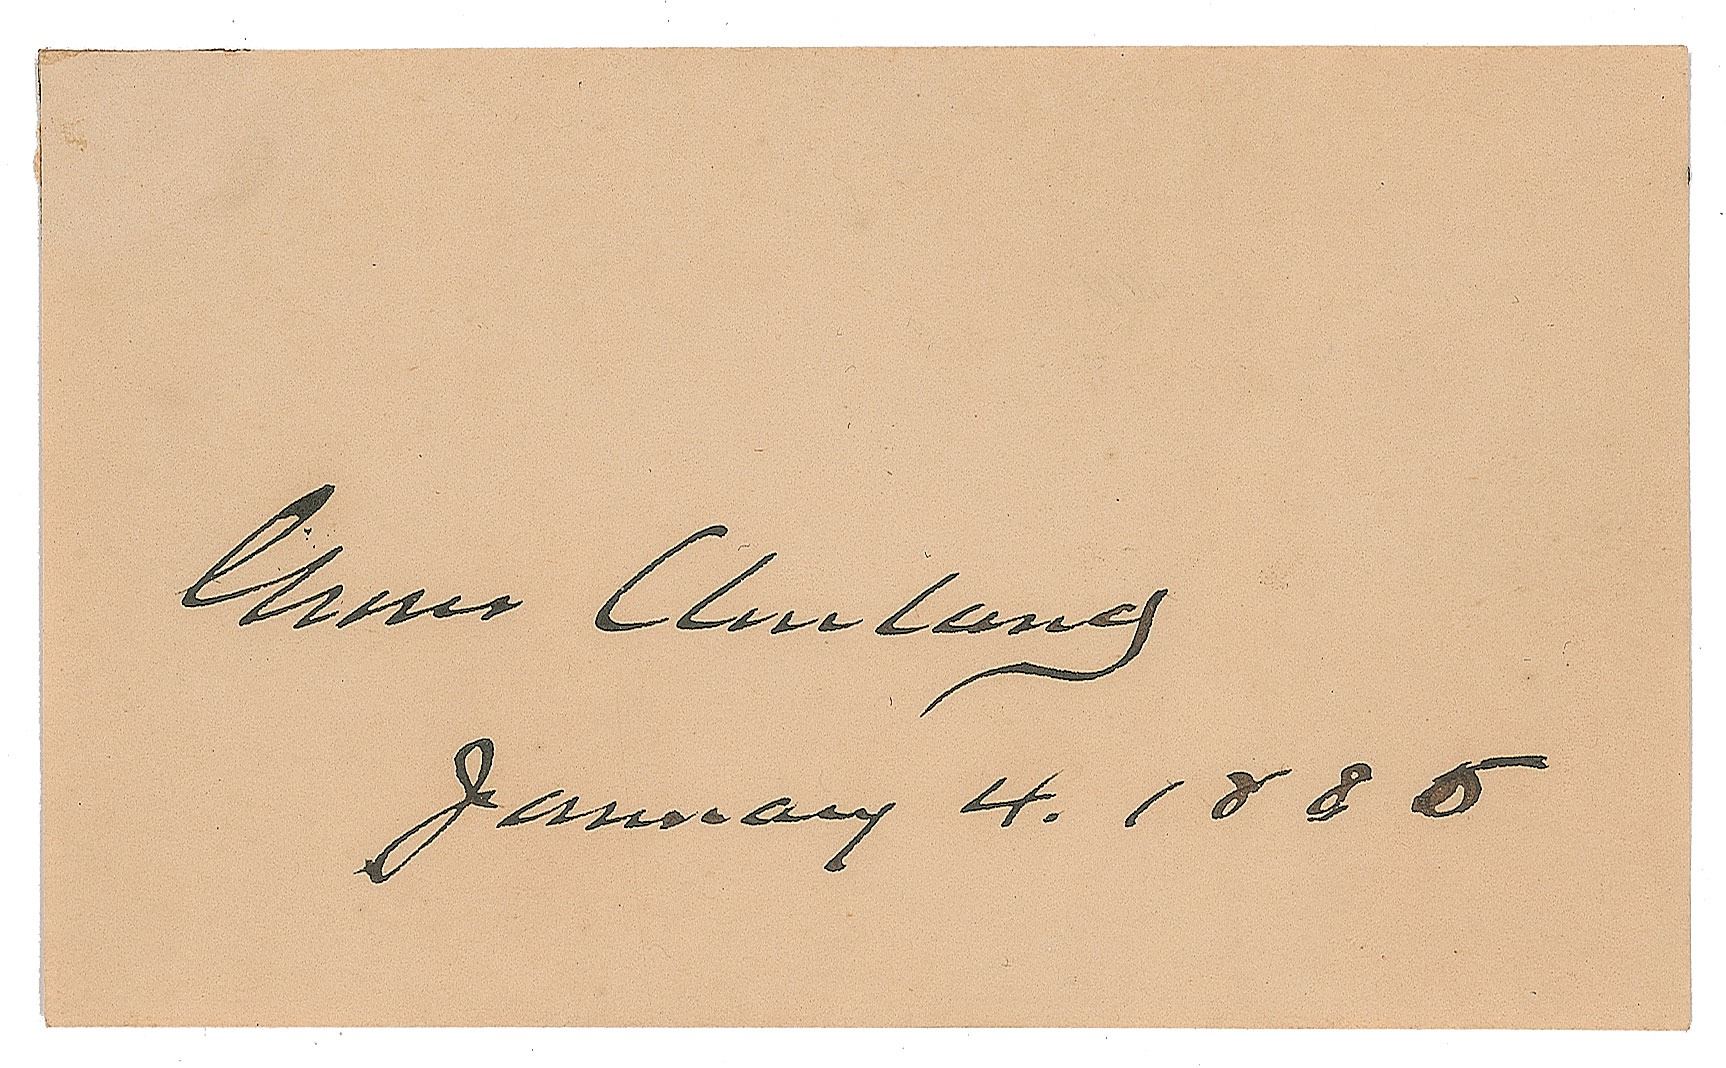 Grover Cleveland
January 4. 1885